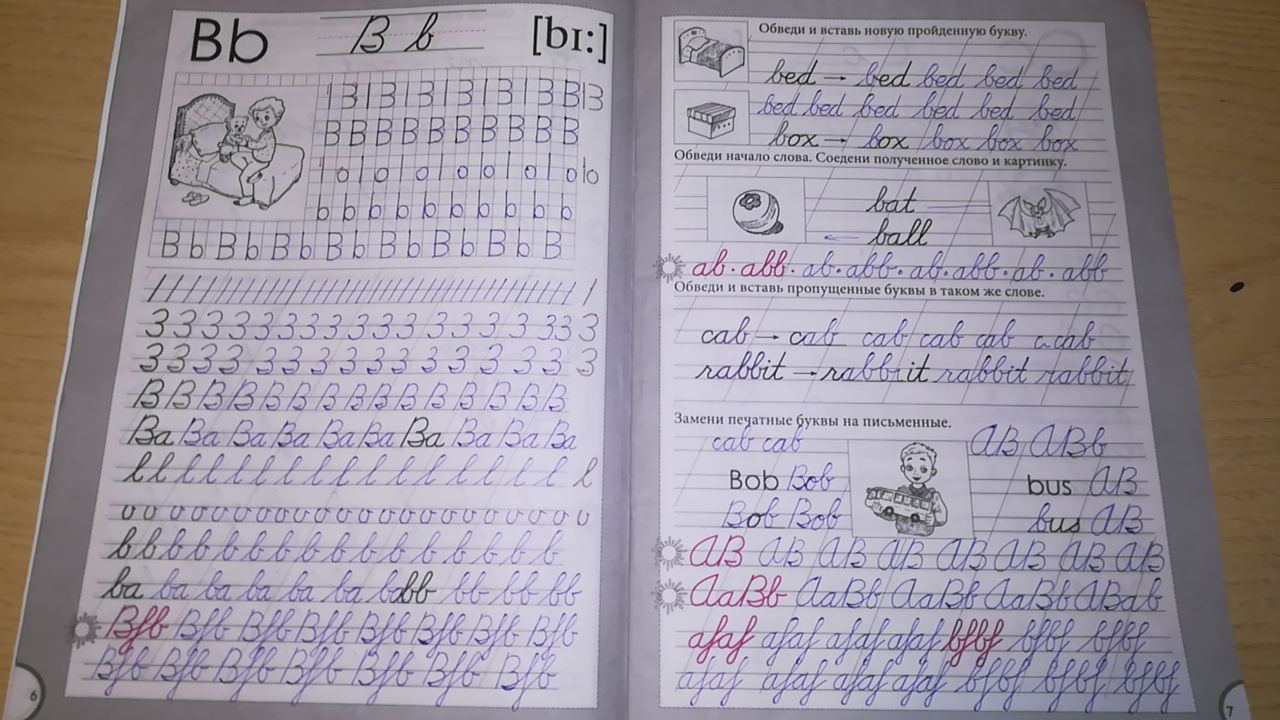 Bb B b [bɪ:]
B B B B B B B B B B
b b b b b b b b b b
B b B b B b B b B b B b B b B
B B B B B B B B B B B B B B B B
Ba Ba Ba Ba Ba Ba Ba Ba Ba Ba
b b b b b b b b b b b b b b b b
ba ba ba ba ba ba ba bb bb bb bb
Bfb Bfb Bfb Bfb Bfb Bfb Bfb Bfb
Bfb Bfb Bfb Bfb Bfb Bfb Bfb
6
Обведи и вставь новую пройденную букву.
bed → bed bed bed bed
bed bed bed bed bed bed
box → box box box box
Обведи начало слова. Соедени полученное слово и картинку.
bat
ball
ab. abb. ab. abb. ab. abb. ab. abb
Обведи и вставь пропущенные буквы в таком же слове.
cab → cab cab cab cab c cab
rabbit → rabbit rabbit rabbit
Замени печатные буквы на письменные.
cab cab AB ABb
Bob Bob bus AB
Bob Bob bus AB
AB AB AB AB AB AB AB AB
AaBb AaBb AaBb AaBb ABab
afaf afaf afaf afaf bfbf bfbf bfbf
afaf afaf afaf afaf bfbf bfbf bfbf
7